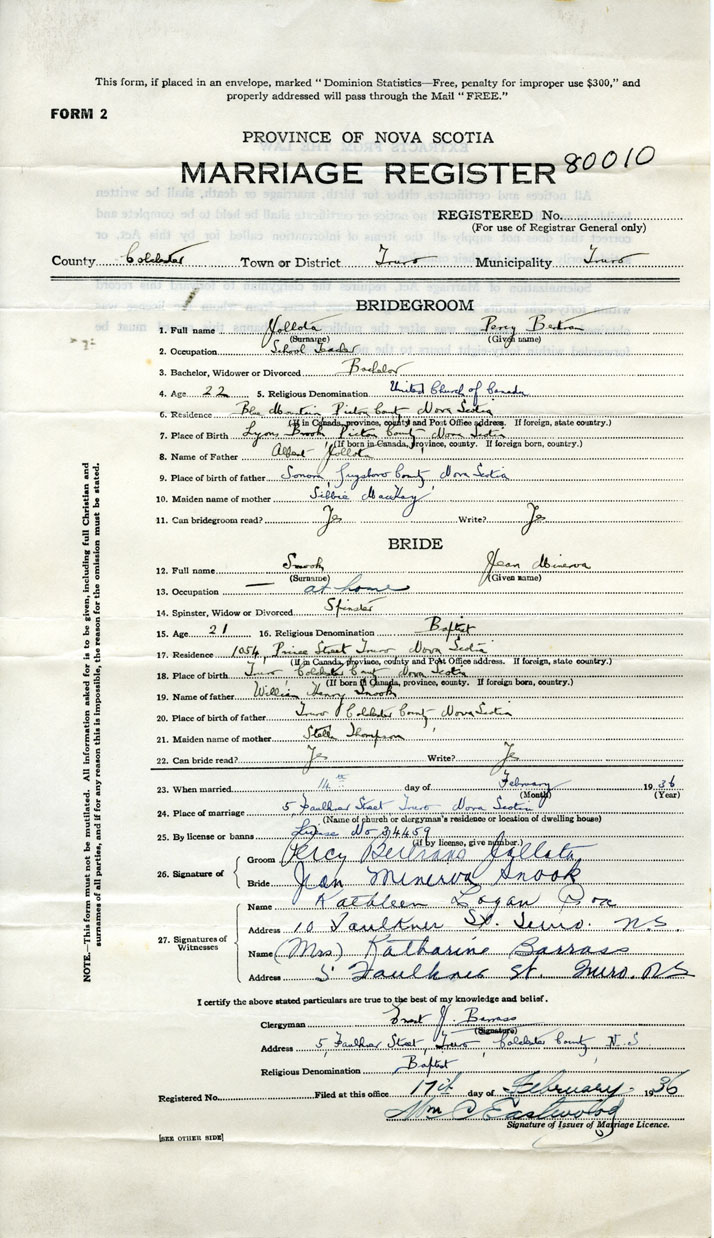 This form, if placed in an envelope, marked "Dominion Statistics—Free, penalty for improper use $300," and
properly addressed will pass through the Mail "FREE."
FORM 2
PROVINCE OF NOVA SCOTIA
MARRIAGE REGISTER 80010
REGISTERED No.
(For use of Registrar General only)
County Colchester Town or District Truro Municipality Truro
BRIDEGROOM
1. Full name Jollota Percy Bertram
(Surname) (Given name)
2. Occupation School Teacher
3. Bachelor, Widower or Divorced Bachelor
4. Age 22 5. Religious Denomination United Church of Canada
6. Residence Blue Mountain Pictou County Nova Scotia
(If in Canada, province, county and Post Office address. If foreign, state country.)
7. Place of Birth Lyons Brook Pictou County Nova Scotia
(If born in Canada, province, county. If foreign born, country.)
8. Name of Father Albert Jollota
9. Place of birth of father Sonora, Guysboro County Nova Scotia
10. Maiden name of mother MacKay
11. Can bridegroom read? Yes Write? Yes
BRIDE
12. Full name Snook Jean Minerva
(Surname) (Given name)
13. Occupation — at home
14. Spinster, Widow or Divorced Spinster
15. Age 21 16. Religious Denomination Baptist
17. Residence 1054, Prince Street Truro Nova Scotia
(If in Canada, province, county and Post Office address. If foreign, state country.)
18. Place of birth Truro Colchester County Nova Scotia
(If born in Canada, province, county. If foreign born, country.)
19. Name of father William Henry Snook
20. Place of birth of father Truro Colchester County Nova Scotia
21. Maiden name of mother Stella Thompson
22. Can bride read? Yes Write? Yes
23. When married 14th day of February 1936
(Month) (Year)
24. Place of marriage 5, Faulkner Street Truro Nova Scotia
(Name of church or clergyman's residence or location of dwelling house)
25. By license or banns License No 34459
(If by license, give number.)
26. Signature of
Groom Percy Bertram Jollota
Bride Jean Minerva Snook
27. Signatures of Witnesses
Name Kathleen Logan
Address 10 Faulkner St. Truro. N.S.
Name (Mrs) Katharine Barrass
Address 5 Faulkner St. Truro. N.S
I certify the above stated particulars are true to the best of my knowledge and belief.
Clergyman Ernest J. Barrass
(Signature)
Address 5, Faulkner Street, Truro, Colchester County N.S
Religious Denomination Baptist
Registered No. Filed at this office 17th day of February 1936
Wm C Eastwood
Signature of Issuer of Marriage Licence.
[SEE OTHER SIDE]
NOTE.—This form must not be mutilated. All information asked for is to be given, including full Christian and
surnames of all parties, and if for any reason this is impossible, the reason for the omission must be stated.